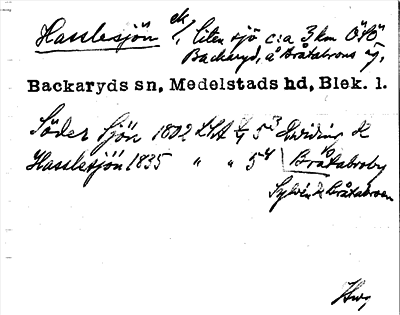 Hasslesjön ek/, liten sjö c:a 3 km ÖSÖ
Backaryd, å Bråtabrons äg.
Backaryds sn, Medelstads hd, Blek. l.
Söder Sjön 1802 LSA 5³
Hasslesjön 1835 " " 5⁴ Bråtabroby
Bråtabroen